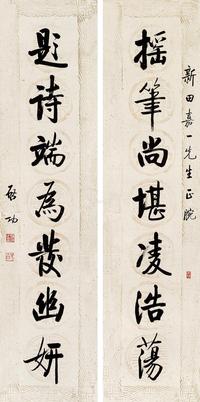 新田嘉一先生正腕
摇筆尚堪凌浩蕩
題詩端為發幽妍
啟功